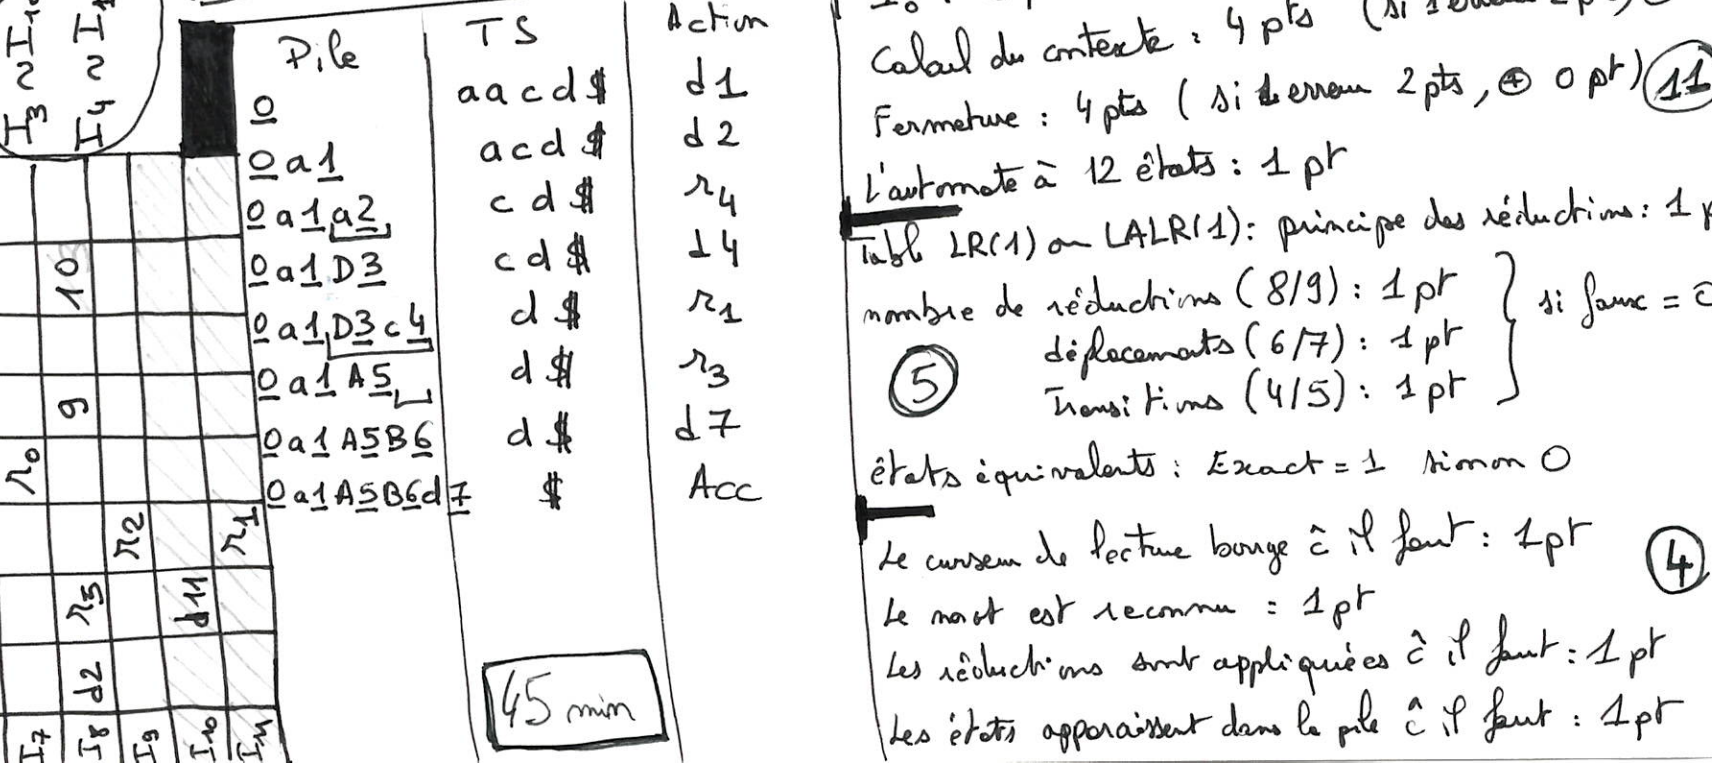 I3 ~ I10
I4 ~ I1
Pile TS Action
0 aacd$ d1
0a1 acd$ d2
0a1a2 cd$ r4
0a1D3 cd$ d4
0a1D3c4 d$ r1
0a1A5 d$ r3
0a1A5B6 d$ d7
0a1A5B6d7 $ Acc
45 min
10
9
r0
r2
r1
r3
d11
d2
I7
I8
I9
I10
I11
Calcul du contexte : 4 pts (si 1 erreur
Fermeture : 4 pts (si 1 erreur 2 pts, ⊕ 0 pt) 11
L'automate à 12 états : 1 pt
Tabl LR(1) ou LALR(1) : principe des réductions : 1 p
nombre de réductions (8/9) : 1 pt
déplacements (6/7) : 1 pt si faux =
5 Transitions (4/5) : 1 pt
états équivalents : Exact = 1 sinon 0
Le curseur de lecture bouge ĉ il faut : 1pt
4
Le mot est reconnu : 1 pt
Les réductions sont appliquées ĉ il faut : 1 pt
Les états apparaissent dans la pile ĉ il faut : 1 pt